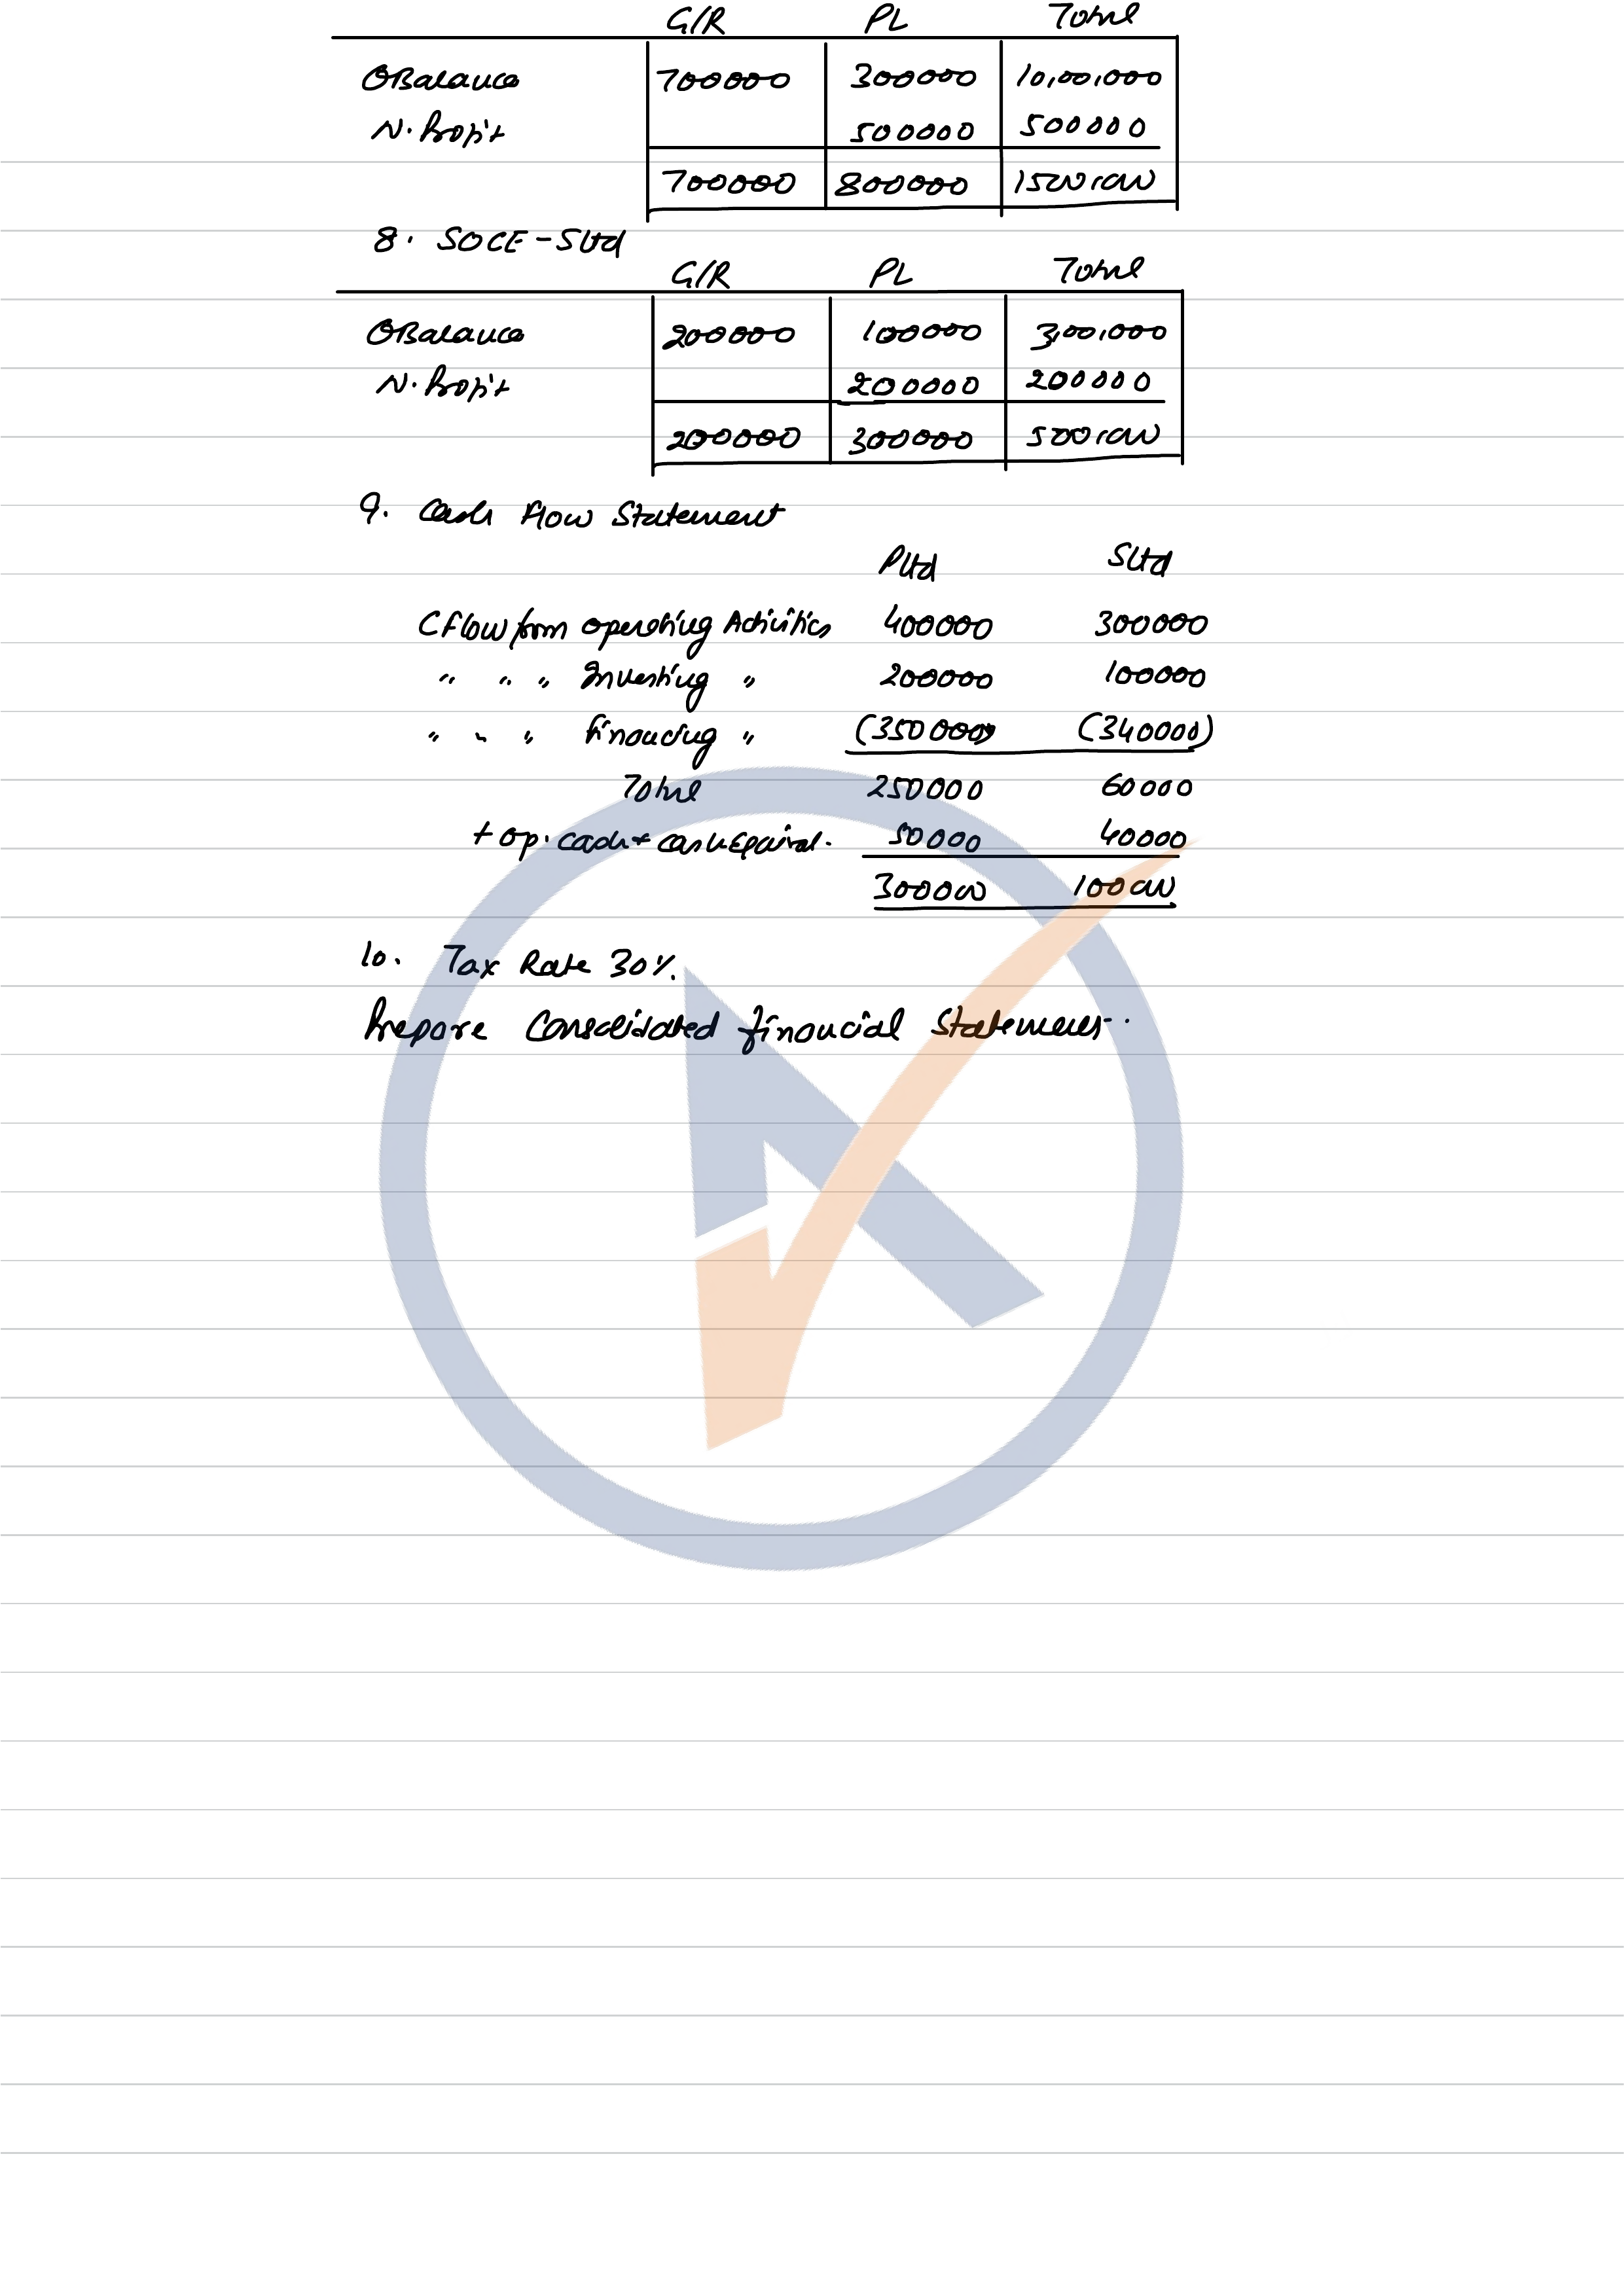 G/R PL Total
OBalance 700000 300000 10,00,000
N. Profit 500000 500000
700000 800000 1500,000
8. SOCE - Sltd
G/R PL Total
OBalance 200000 100000 3,00,000
N. Profit 200000 200000
200000 300000 500,000
9. Cash flow Statement
Pltd Sltd
C flow from operating Activities 400000 300000
" " " Investing " 200000 100000
" " " financing " (350000) (340000)
Total 250000 60000
+ op. cash + cash Equival. 50000 40000
300000 100000
10. Tax Rate 30%.
Prepare Consolidated financial Statements.